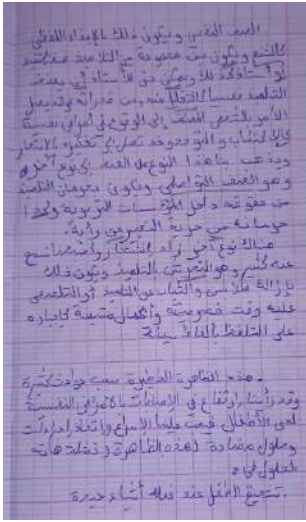 العنف النفسي ويكون ذلك بالإيذاء اللفظي
كالشتم ويكون بين مجموعة من التلاميذ ضد تلميذ
أو أستاذ كذلك ويمكن من الأستاذ أن يعنف
التلميذ نفسيا منه ومن قدراته وقد يصل
الأمر بالشخص المعنف إلى الوقوع في أمراض نفسية
كالاكتئاب والتوحد وقد تصل إلى تفكيره بالانتحار
ويذهب بنا هذا النوع من العنف إلى نوع آخر ألا
وهو العنف التواصلي ويكون بحرمان التلميذ
من حقوقه داخل المؤسسات التربوية وكذا
حرمانه من حرية التعبير عن رأيه.
هناك نوع آخر زاد انتشارا وأصبحنا نسمع
عنه كثيرا وهو التحرش بالتلميذ ويكون ذلك
بإزالة ملابس والثياب عن التلميذ أو التلصص
عليه وقت خصوصية وأعمال مشينة كإجباره
على التلفظ بألفاظ سيئة
هذه الظاهرة الخطيرة سببت حوادث كثيرة
وقد رأينا ارتفاع في الإصابات بالأمراض النفسية
لدى الأطفال فيجب علينا الإسراع واتخاذ إجراءات
وحلول مضادة لهذه الظاهرة وتتمثل هاته
الحلول في:
تشجيع الطفل عند فعله أشياء جيدة